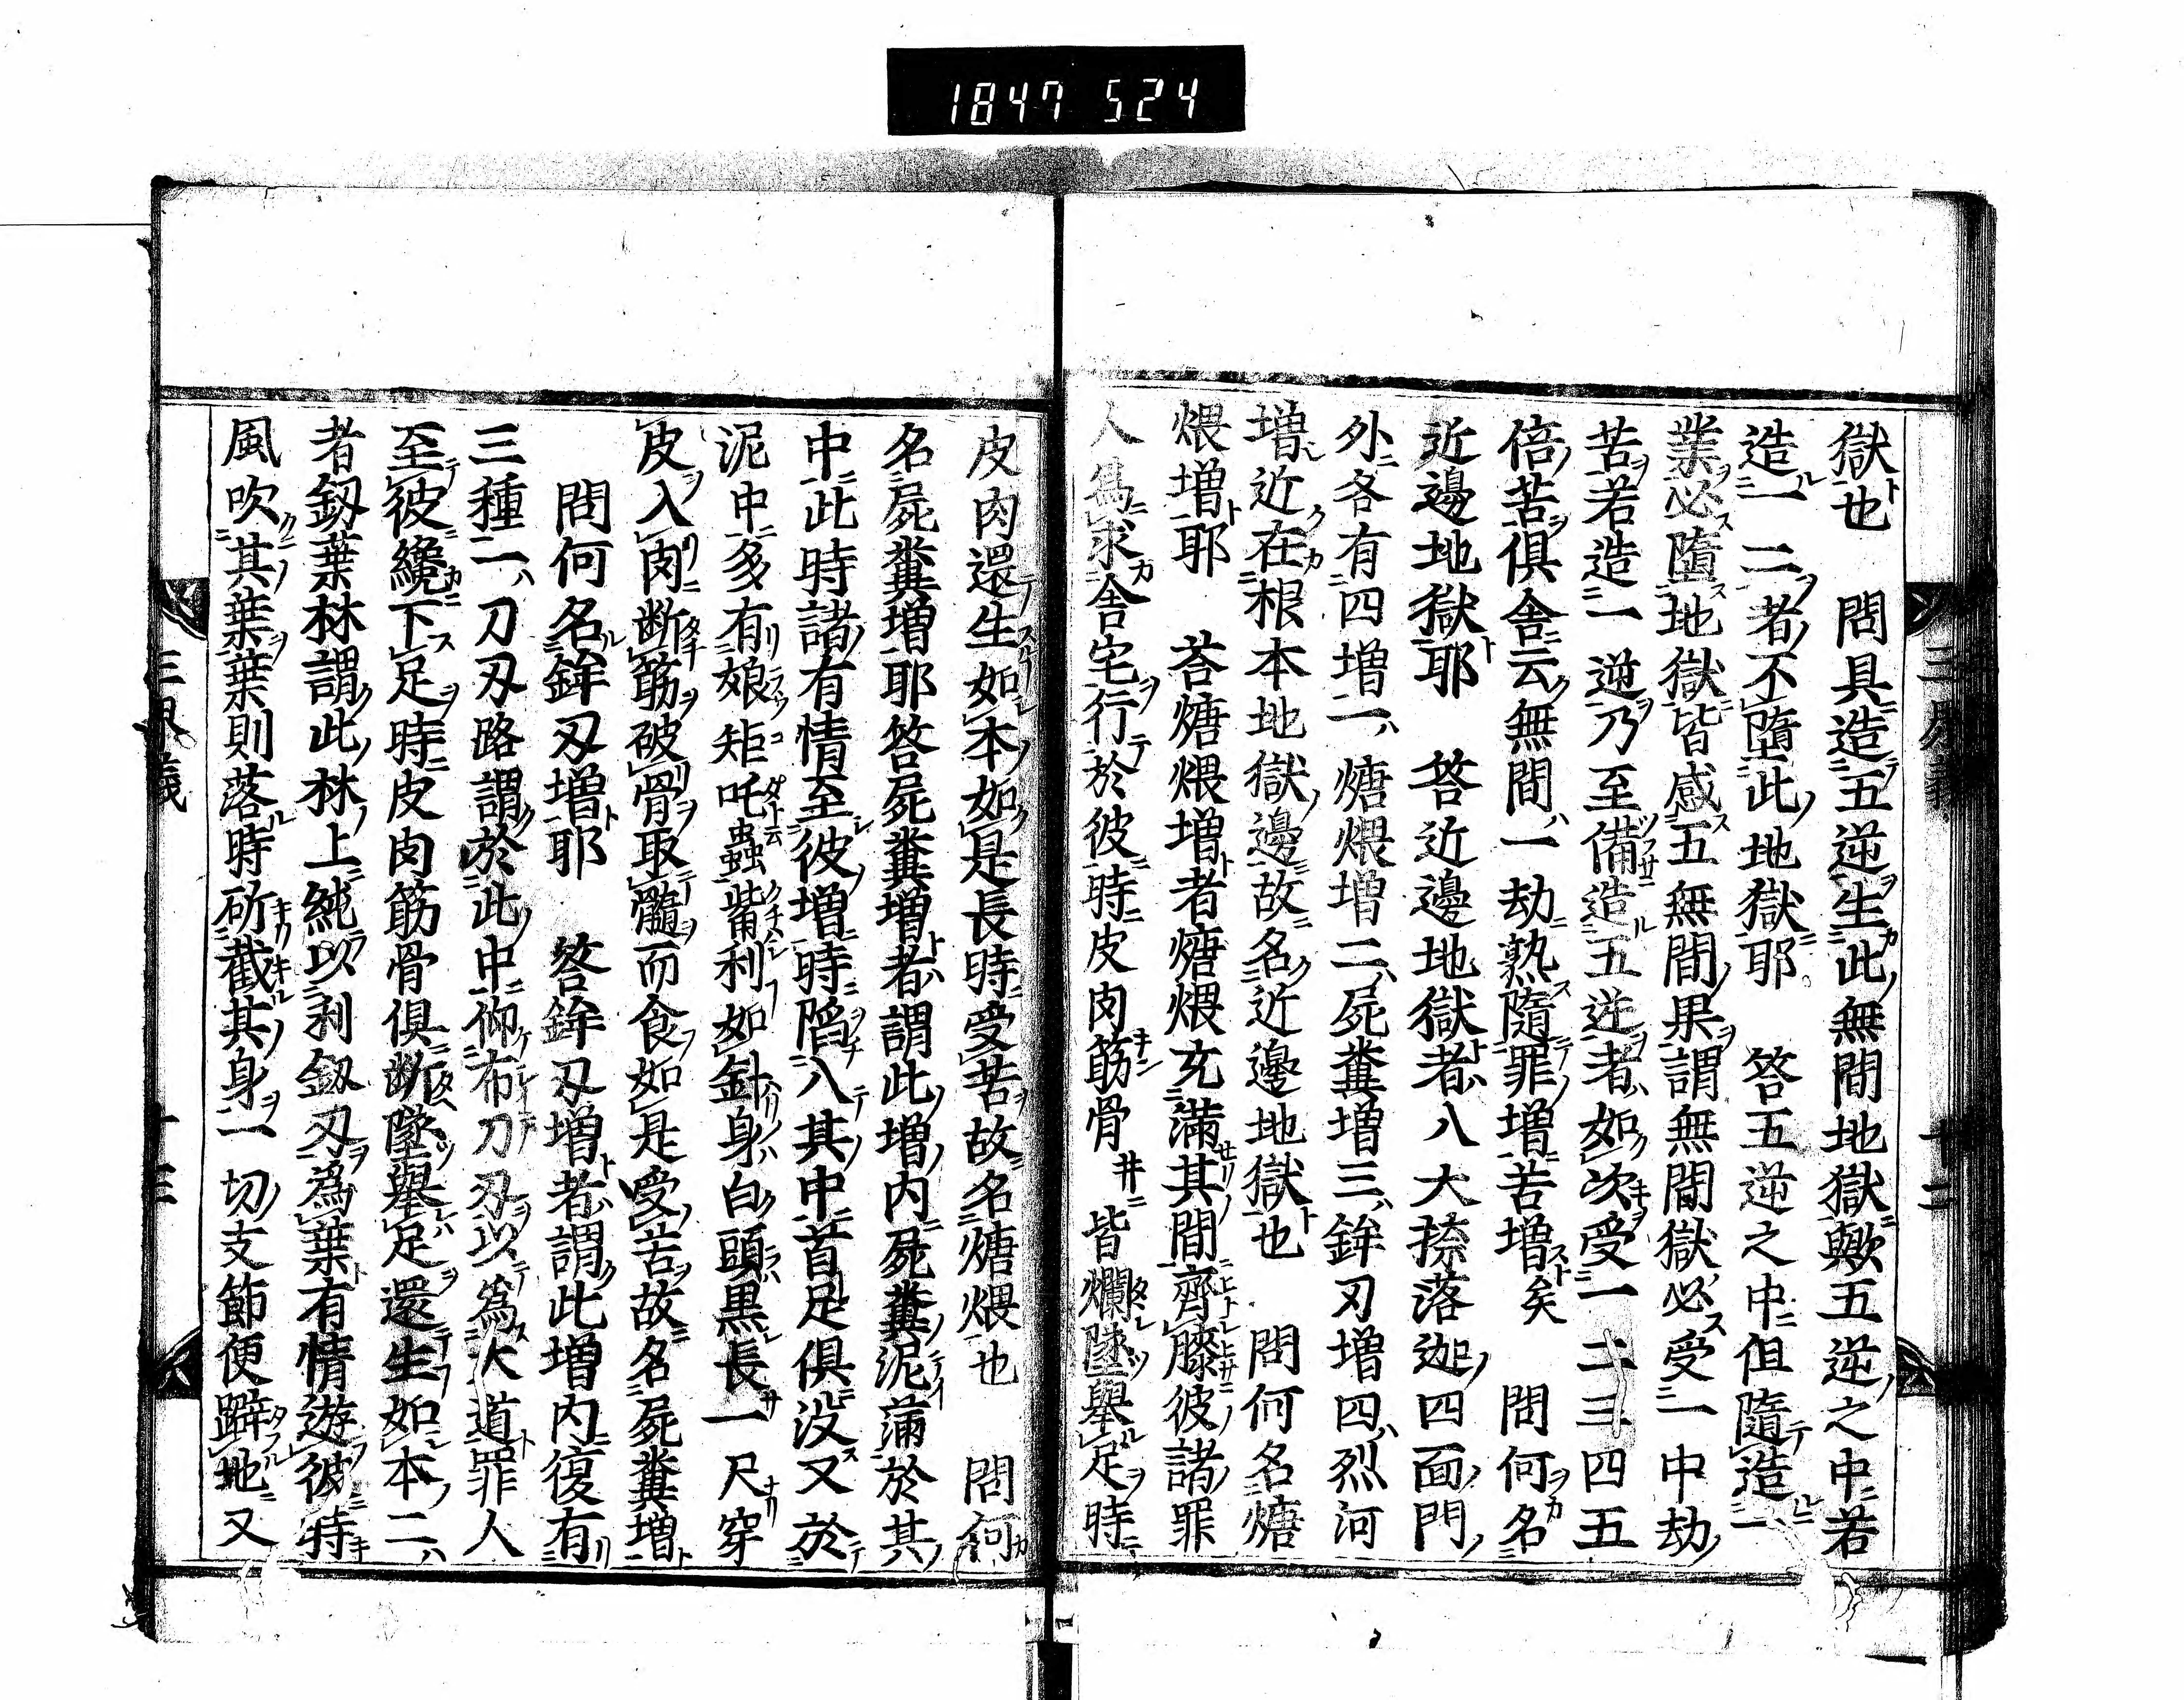 1847 524
獄也　問具造五逆生此無間地獄歟五逆之中若
造一二者不墮此地獄耶　答五逆之中但隨造一
業必墮地獄皆感五無間果謂無間獄必受一中劫
苦若造一逆乃至備造五逆者如次受一二三四五
倍苦俱舍云無間一劫熟隨罪增苦增矣　問何名
近邊地獄耶　答近邊地獄者八大捺落迦四面門
外各有四增一煻煨增二屍糞增三鉾刃增四烈河
增近在根本地獄邊故名近邊地獄也　問何名煻
煨增耶　答煻煨增者煻煨充滿其間齊膝彼諸罪
人爲求舍宅行於彼時皮肉筋骨井皆爛墜舉足時
皮肉還生如本如是長時受苦故名煻煨也　問何
名屍糞增耶答屍糞增者謂此增內屍糞泥蒲於其
中此時諸有情至彼增時陷入其中首足俱没又於
泥中多有娘矩吒蟲觜利如針身白頭黒長一尺穿
皮入肉断筋破骨取髓而食如是受苦故名屍糞增
問何名鉾刃增耶　答鉾刃增者謂此增內復有
三種一刀刃路謂於此中仰布刀刃以爲大道罪人
至彼纔下足時皮肉筋骨俱断墜舉足還生如本二
者釼葉林謂此林上純以利釼刃爲葉有情遊彼時
風吹其葉葉則落時斫截其身一切支節便躃地又
三界義　十二
三界義　十三